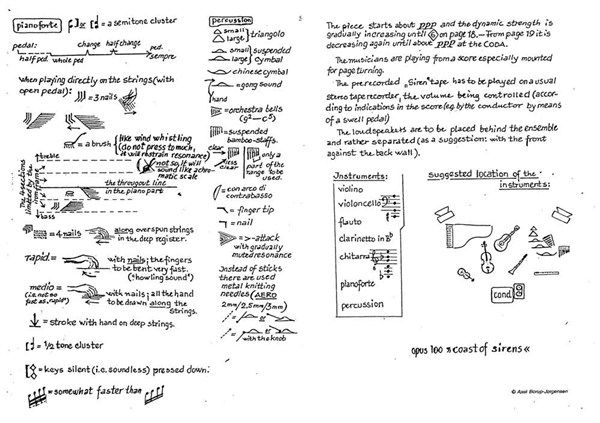 pianoforte
or = a semitone cluster
pedal:
change
half change
ped.
half ped. whole ped
sempre
when playing directly on the strings (with
open pedal):
= 3 nails
= a brush
like wind whistling
(do not press to much,
it will restrain resonance)
not so, it will
sound like chro-
matic scale
treble
the througout line
in the piano part
bass
= 4 nails
along overspun strings
in the deep register.
rapid =
with nails; the fingers
to be bent very fast.
("howling sound")
medio =
(i.e. not so
fast as "rapid")
with nails; all the hand
to be drawn along the
strings.
= stroke with hand on deep strings.
= 1/2 tone cluster
= keys silent (i.e. soundless) pressed down.
= somewhat faster than
percussion
small
large
triangolo
small
large
suspended
cymbal
= chinese cymbal
= gong sound
hand
= orchestra bells
(g2–c5)
= suspended
bamboo-staffs.
clear
less
clear
only a
part of the
range to be
used.
= con arco di
contrabasso
= finger tip
= nail
= > -attack
with gradually
muted resonance
Instead of sticks
there are used
metal knitting
needles (AERO
2mm/2,5mm/3mm)
with the knob
The piece starts about ppp and the dynamic strength is
gradually increasing until 6 on page 18.— From page 19 it is
decreasing again until about ppp at the CODA.
The musicians are playing from a score especially mounted
for page turning.
The prerecorded "Siren" tape has to be played on a usual
stereo tape recorder, the volume being controlled (accor-
ding to indications in the score (eg by the conductor by means
of a swell pedal)
The loudspeakers are to be placed behind the ensemble
and rather separated (as a suggestion: with the front
against the back wall).
Instruments:
violino
violoncello
flauto
clarinetto in Bb
chitarra
pianoforte
percussion
Suggested location of the
instruments:
cond.
opus 100 »coast of sirens«
© Axel Borup-Jørgensen